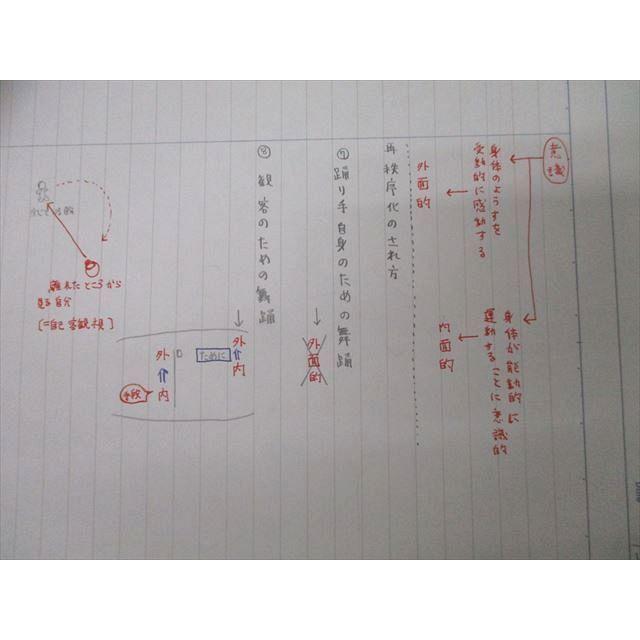 意識
身体のようすを
受動的に感動する
外面的
身体が能動的に
運動することに意識的
内面的
再秩序化のされ方
⑦踊り手自身のための舞踊
外面的
⑧観客のための舞踊
外
内
ために
外
内
手段
離れたところから
見る自分
[=自己客観視]